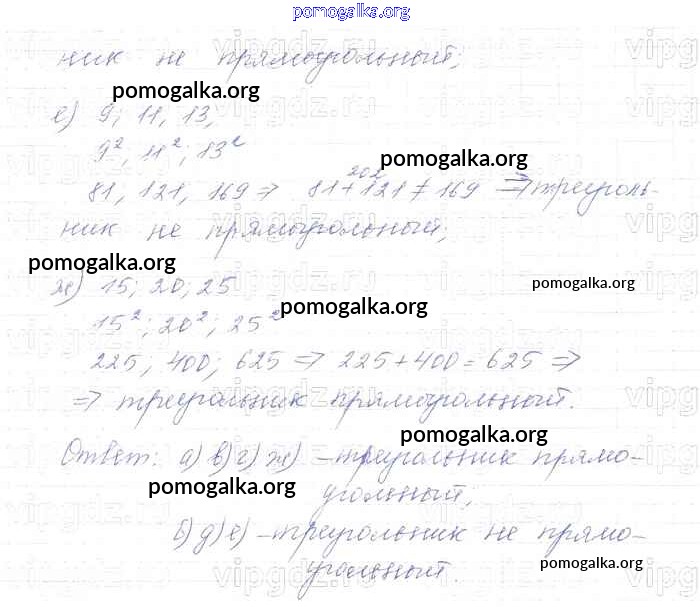 pomogalka.org
ник не прямоугольный;
pomogalka.org
е) 9; 11, 13;
9²; 11²; 13²
pomogalka.org
202
81, 121, 169 ⇒ 81+121 ≠ 169 ⇒ треуголь-
ник не прямоугольный;
pomogalka.org
ж) 15; 20; 25
pomogalka.org
pomogalka.org
15²; 20²; 25²
225; 400; 625 ⇒ 225+400=625 ⇒
⇒ треугольник прямоугольный.
pomogalka.org
Ответ: а) в) г) ж) – треугольник прямо-
pomogalka.org
угольный;
б) д) е) – треугольник не прямо-
pomogalka.org
угольный.